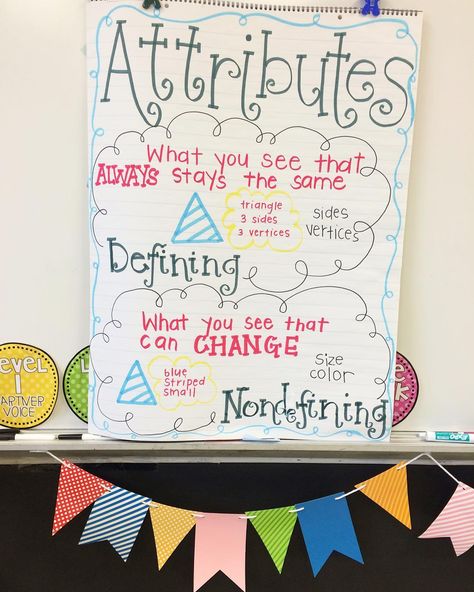 Attributes
What you see that
ALWAYS stays the same
triangle
3 sides
3 vertices
sides
vertices
Defining
What you see that
can CHANGE
blue
striped
small
size
color
Nondefining
LEVEL
1
PARTNER
VOICE
EXPO